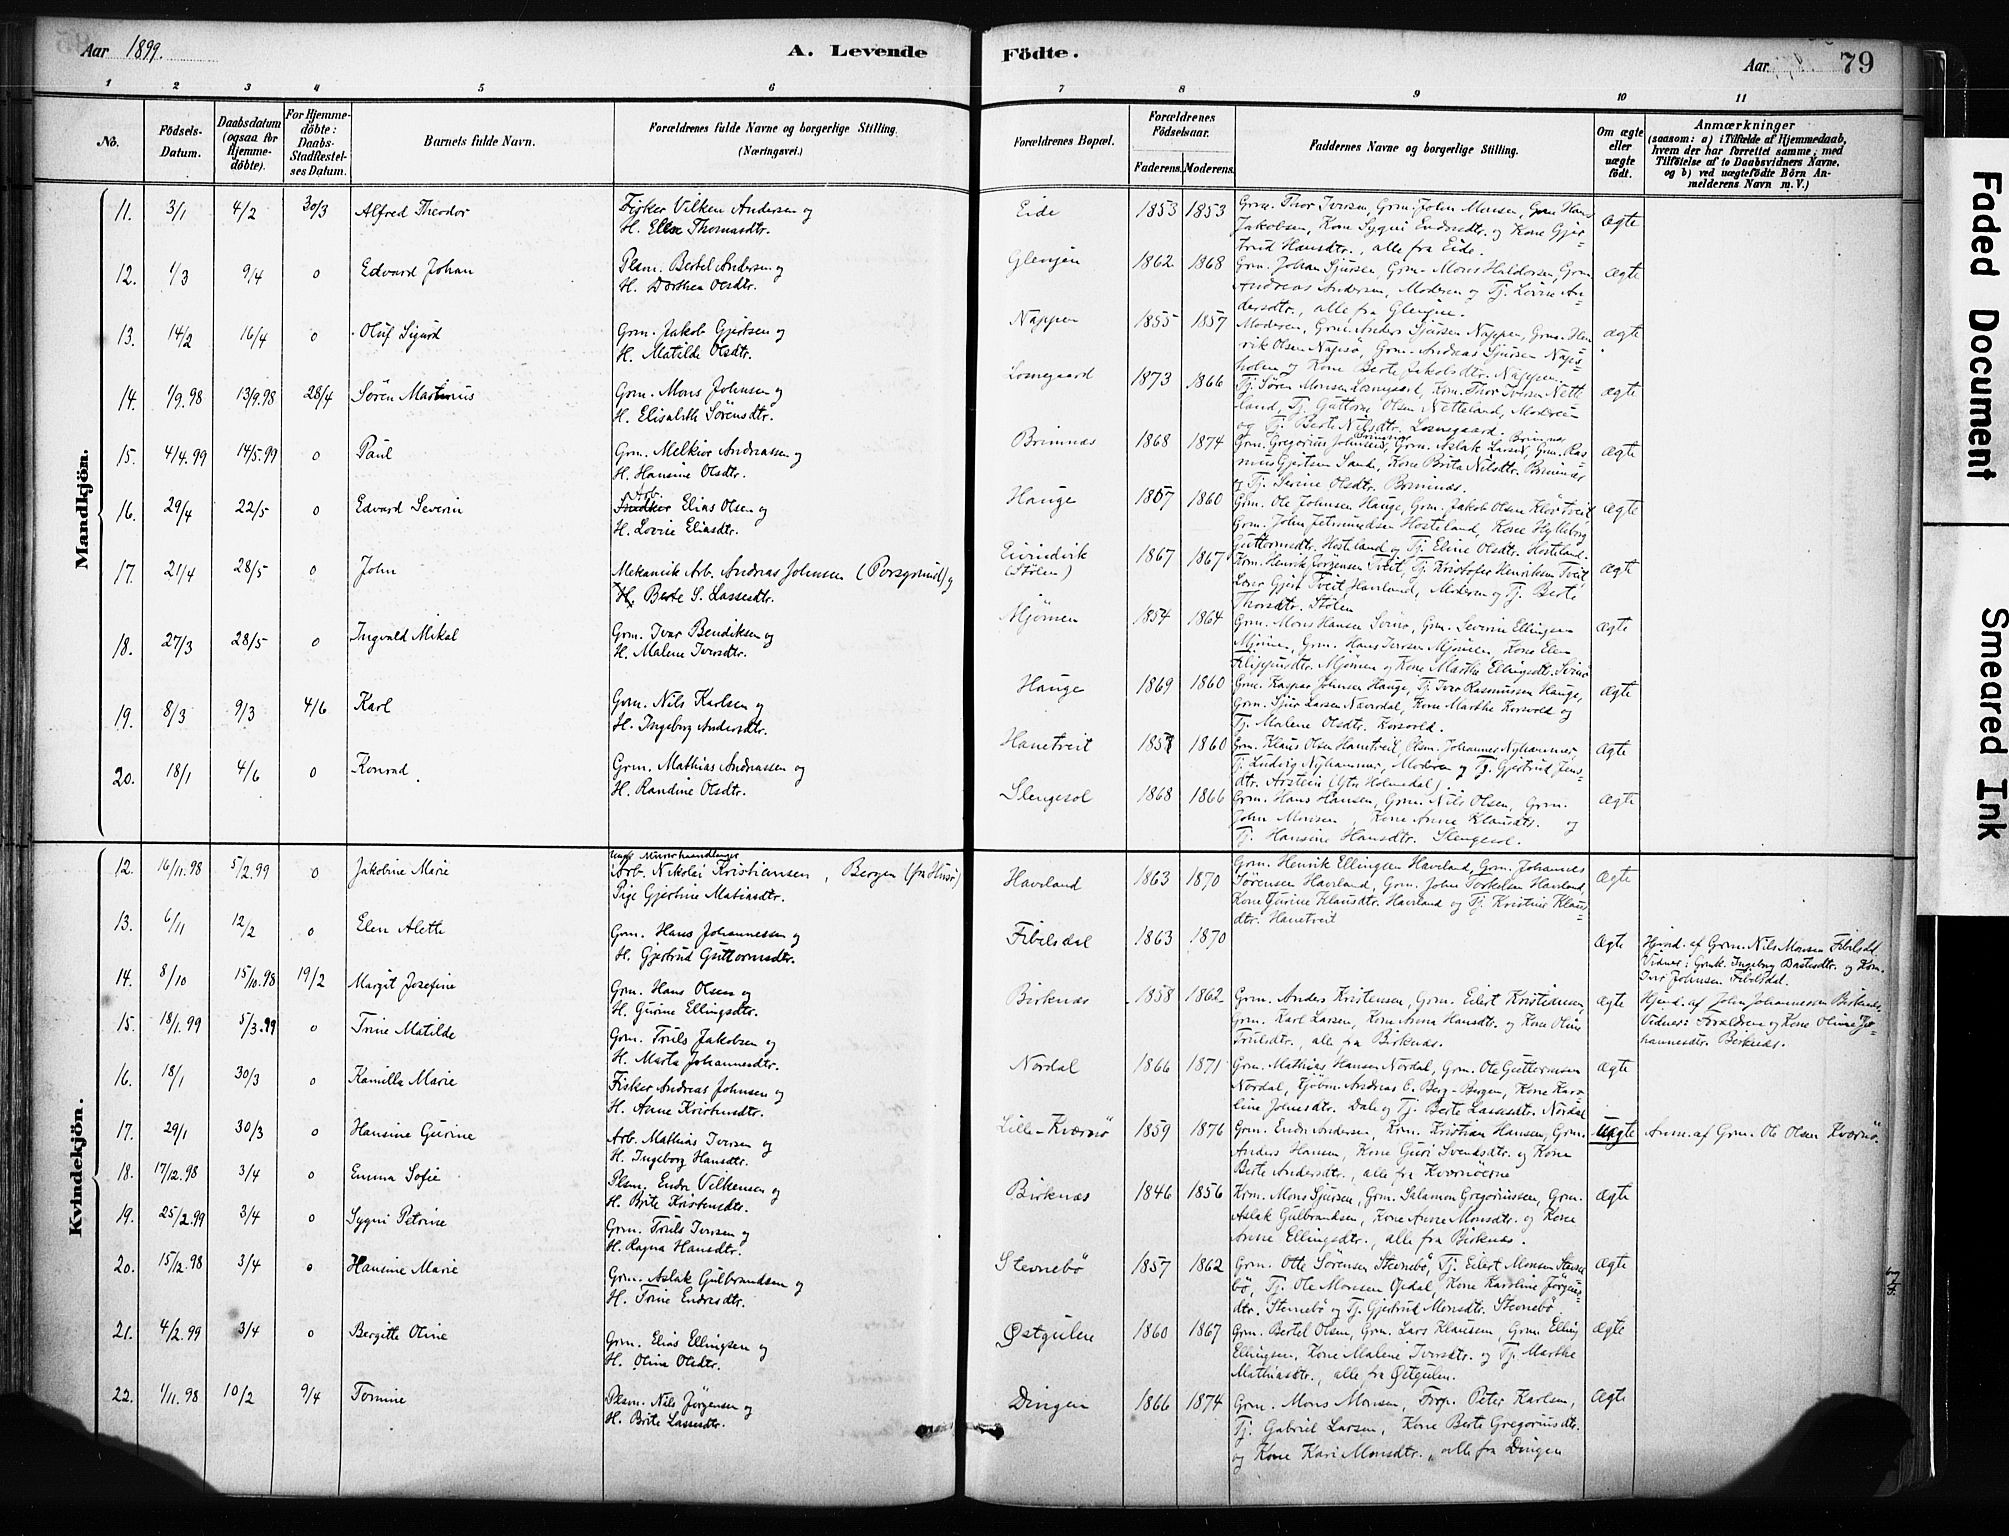 Aar 1899.
A. Levende
1 2 3 4 5 6
No.
Födsels-Datum.
Daabsdatum (ogsaa for Hjemme-döbte).
For Hjemme-döbte: Daabs-Stadfæstel-ses Datum.
Barnets fulde Navn.
Forældrenes fulde Navne og borgerlige Stilling.
(Næringsvei.)
Mandkjön.
11. 3/1 4/2 30/3 Alfred Theodor Fisker Vilken Andersen og
H. Elen Thomasdtr.
12. 1/3 9/4 0 Edvard Johan Plsm. Bertel Andersen og
H. Dorthea Olsdtr.
13. 14/2 16/4 0 Oluf Sigurd Grm. Jakob Gjertsen og
H. Matilde Olsdtr.
14. 1/9.98 13/9.98 28/4 Søren Martinus Grm. Mons Johnsen og
H. Elisabeth Sørensdtr.
15. 4/4.99 14/5.99 0 Paul Grm. Melkior Andreassen og
H. Hansine Olsdtr.
16. 29/4 22/5 0 Edvard Severin Arb. Elias Olsen og
H. Lovise Eliasdtr.
17. 21/4 28/5 0 John Mekanisk Arb. Andreas Johnsen (Porsgrund) og
H. Berte S. Lassesdtr.
18. 27/3 28/5 0 Ingvald Mikal Grm. Ivar Bendiksen og
H. Malene Iversdtr.
19. 8/3 9/3 4/6 Karl Grm. Nils Karlsen og
H. Ingeborg Andersdtr.
20. 18/1 4/6 0 Konrad. Grm. Mathias Andreassen og
H. Randine Olsdtr.
Kvindekjön.
12. 16/11.98 5/2.99 0 Jakobine Marie Arb. Nikolai Kristiansen, Bergen (fra Husø)
Pige Gjertine Matiasdtr.
13. 6/11 12/2 0 Elen Alette Grm. Hans Johannessen og
H. Gjertrud Guttormsdtr.
14. 8/10 15/10.98 19/2 Margit Josefine Grm. Hans Olsen og
H. Gurine Ellingsdtr.
15. 18/1.99 5/3.99 0 Trine Matilde Grm. Truls Jakobsen og
H. Marta Johannesdtr.
16. 18/1 30/3 0 Kamilla Marie Fisker Andreas Johnsen og
H. Anne Kristensdtr.
17. 29/1 30/3 0 Hansine Gurine Arb. Mathias Iversen og
H. Ingeborg Hansdtr.
18. 17/12.98 3/4 0 Emma Sofie Plsm. Endre Vilkensen og
H. Brite Kristensdtr.
19. 25/2.99 3/4 0 Sygni Petrine Grm. Truls Iversen og
H. Ragna Hansdtr.
20. 15/12.98 3/4 0 Hansine Marie Grm. Aslak Gulbrandsen og
H. Trine Endresdtr.
21. 4/2.99 3/4 0 Bergitte Oline Grm. Elias Ellingsen og
H. Oline Olsdtr.
22. 1/11.98 10/2 9/4 Tomine Plsm. Nils Jørgensen og
H. Brite Lassesdtr.
Födte.
Aar 79
7 8 8 9 10 11
Forældrenes Bopæl.
Forældrenes Födselsaar.
Faderens. Moderens.
Faddernes Navne og borgerlige Stilling.
Om ægte eller uægte födt.
Anmærkninger
(saasom: a) i Tilfælde af Hjemmedaab,
hvem der har forrettet samme, med
Tilföielse af to Daabsvidners Navne,
og b) ved uægtefödte Börn An-
melderens Navn m. V.)
Eide 1853 1853 Grm. Thor Iversen, Grm. John Monsen, Grm Hans ægte
Jakobsen, Kone Sygni Endresdtr. og Kone Gjer-
trud Hansdtr., alle fra Eide.
Glenjen 1862 1868 Grm. Johan Sjursen, Grm. Mons Haldorsen, Grm ægte
Andreas Andersen, Moderen og Tj. Lovise An-
dersdtr., alle fra Glenjene.
Nappen 1855 1857 Moderen, Grm. Anders Sjursen Nappen, Grm. Hen ægte
rik Olsen Napsø, Grm. Andreas Sjursen Naps-
holen og Kone Berte Jakobsdtr. Nappen.
Losnegaard 1873 1866 Tj. Søren Monsen Losnegaard, Krm. Thor Iversen Nett ægte
land, Tj. Guttorm Olsen Netteland, Moderen
og Tj. Berte Nilsdtr. Losnegaard.
Brimnæs 1868 1874 Grm. Gregorius Johnsen Brimnæs, Grm. Aslak Larsen Brimnæs, Grm. Ras ægte
mus Gjertsen Sande, Kone Brita Nilsdtr. Brimnæs
og Tj. Serine Olsdtr. Brimnæs.
Hauge 1867 1860 Grm. Ole Johnsen Hauge, Grm. Jakob Olsen Kløvtveit ægte
Grm. John Jetmundsen Hosteland, Kone Hylleborg
Guttormsdtr. Hosteland og Tj. Eline Olsdtr. Hosteland.
Eivindvik (Stølen) 1867 1867 Krm. Henrik Jørgensen Tveit, Tj. Kristofer Henriksen Tveit ægte
Gjert Tveit Haveland, Moderen og Tj. Berte
Thorsdtr. Stølen
Mjømen 1854 1864 Grm. Mons Hansen Svinø, Grm. Severin Ellingsen ægte
Mjømen, Grm. Hans Iversen Mjømen, Kone Elen
Filippusdtr. Mjømen og Kone Marthe Ellingsdtr. Svinø
Hauge 1869 1860 Grm. Kaspar Johnsen Hauge, Tj. Ivar Rasmussen Hauge, ægte
Grm. Sjur Larsen Nævrdal, Kone Marthe Korsvold og
Tj. Malene Olsdtr. Korsvold.
Hanetveit 1857 1860 Grm. Klaus Olsen Hanetveit, Plsm. Johannes Nyhammer ægte
Tj. Ludvig Nyhammer, Moderen og Tj. Gjertrud Jens-
dtr. Arstein (Ytr. Holmedal).
Slengesol 1868 1866 Grm. Hans Hansen, Grm. Nils Olsen, Grm. ægte
John Monsen, Kone Anne Klausdtr. og
Tj. Hansine Hansdtr. Slengesol.
Haveland 1863 1870 Grm. Henrik Ellingsen Haveland, Grm. Johannes ægte
Sørensen Haveland, Grm. John Torkelsen Haveland,
Kone Gurine Klausdtr. Haveland og Tj. Kristine Klaus-
dtr. Hanetveit
Fibelsdal 1863 1870 ægte Hjmd. af Grm. Nils Monsen Fibelsdal
Vidner: Grmk. Ingeborg Bastesdtr. og Krm.
Ivar Johnsen Fibelsdal.
Birknæs 1858 1862 Grm. Anders Kristensen, Grm. Eilert Kristiansen, ægte Hjmd. af John Johannessen Birknæs
Grm. Karl Larsen, Kone Anna Hansdtr. og Kone Oline Vidner: Forældrene og Kone Oline Jo-
Trulsdtr., alle fra Birknæs. hannesdtr. Birknæs.
Nordal 1866 1871 Grm. Mathias Hansen Nordal, Grm. Ole Guttormsen ægte
Nordal, Kjøbm. Andreas C. Berg - Bergen, Kone Karo
line Johnsdtr. Dale og Tj. Berte Lassesdtr. Nordal
Lille-Kværnø 1859 1876 Grm. Endre Andersen, Krm. Kristian Hansen, Grm. Uægte Anm. af Grm. Ole Olsen Kværnø.
Anders Hansen, Kone Guri Svendsdtr. og Kone
Berte Andersdtr., alle fra Kværnøerne
Birknæs 1846 1856 Krm. Mons Sjursen, Grm. Salamon Gregoriussen, Grm. ægte
Aslak Gulbrandsen, Kone Anne Monsdtr. og Kone
Anne Ellingsdtr., alle fra Birknæs.
Stevnebø 1857 1862 Grm. Otte Sørensen Stevnebø, Tj. Eilert Monsen Stevne ægte
bø, Tj. Ole Monsen Opdal, Kone Karoline Jørgens-
dtr. Stevnebø og Tj. Gjertrud Monsdtr. Stevnebø
Østgulene 1860 1867 Grm. Bertel Olsen, Grm. Lars Klausen, Grm. Elling ægte
Ellingsen, Kone Malene Iversdtr. og Tj. Marthe
Mathiasdtr., alle fra Østgulen.
Dingen 1866 1874 Grm. Mons Monsen, Forp. Peter Karlsen, ægte
Tj. Gabriel Larsen, Kone Berte Gregoriusdtr.
og Kone Kari Monsdtr., alle fra Dingen
Faded Document
Smeared Ink